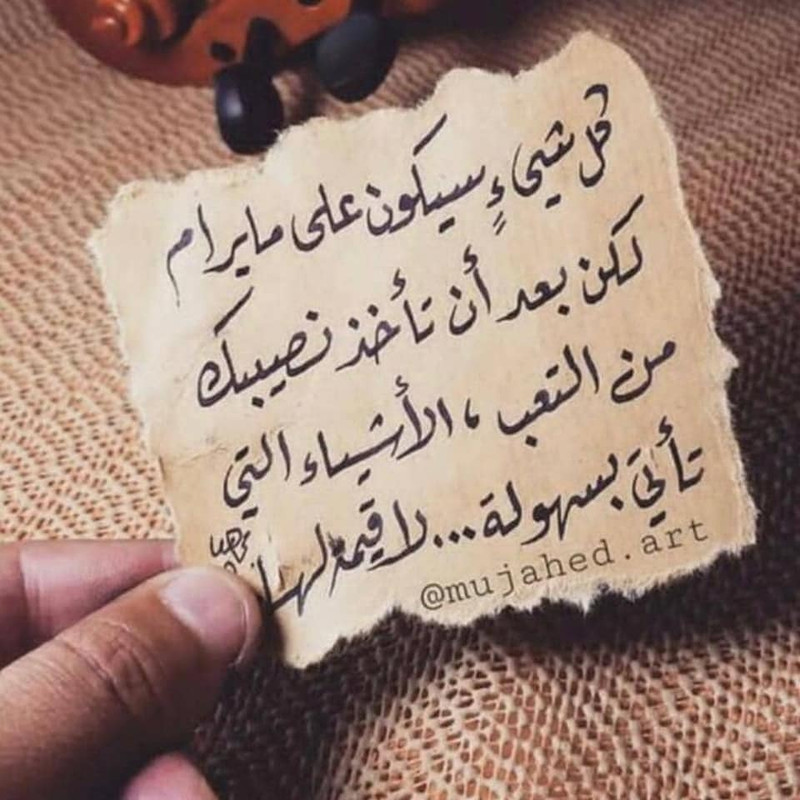 كل شيءٍ سيكون على مايرام
لكن بعد أن تأخذ نصيبك
من التعب، الأشياء التي
تأتي بسهولة... لا قيمة لها
@mujahed.art